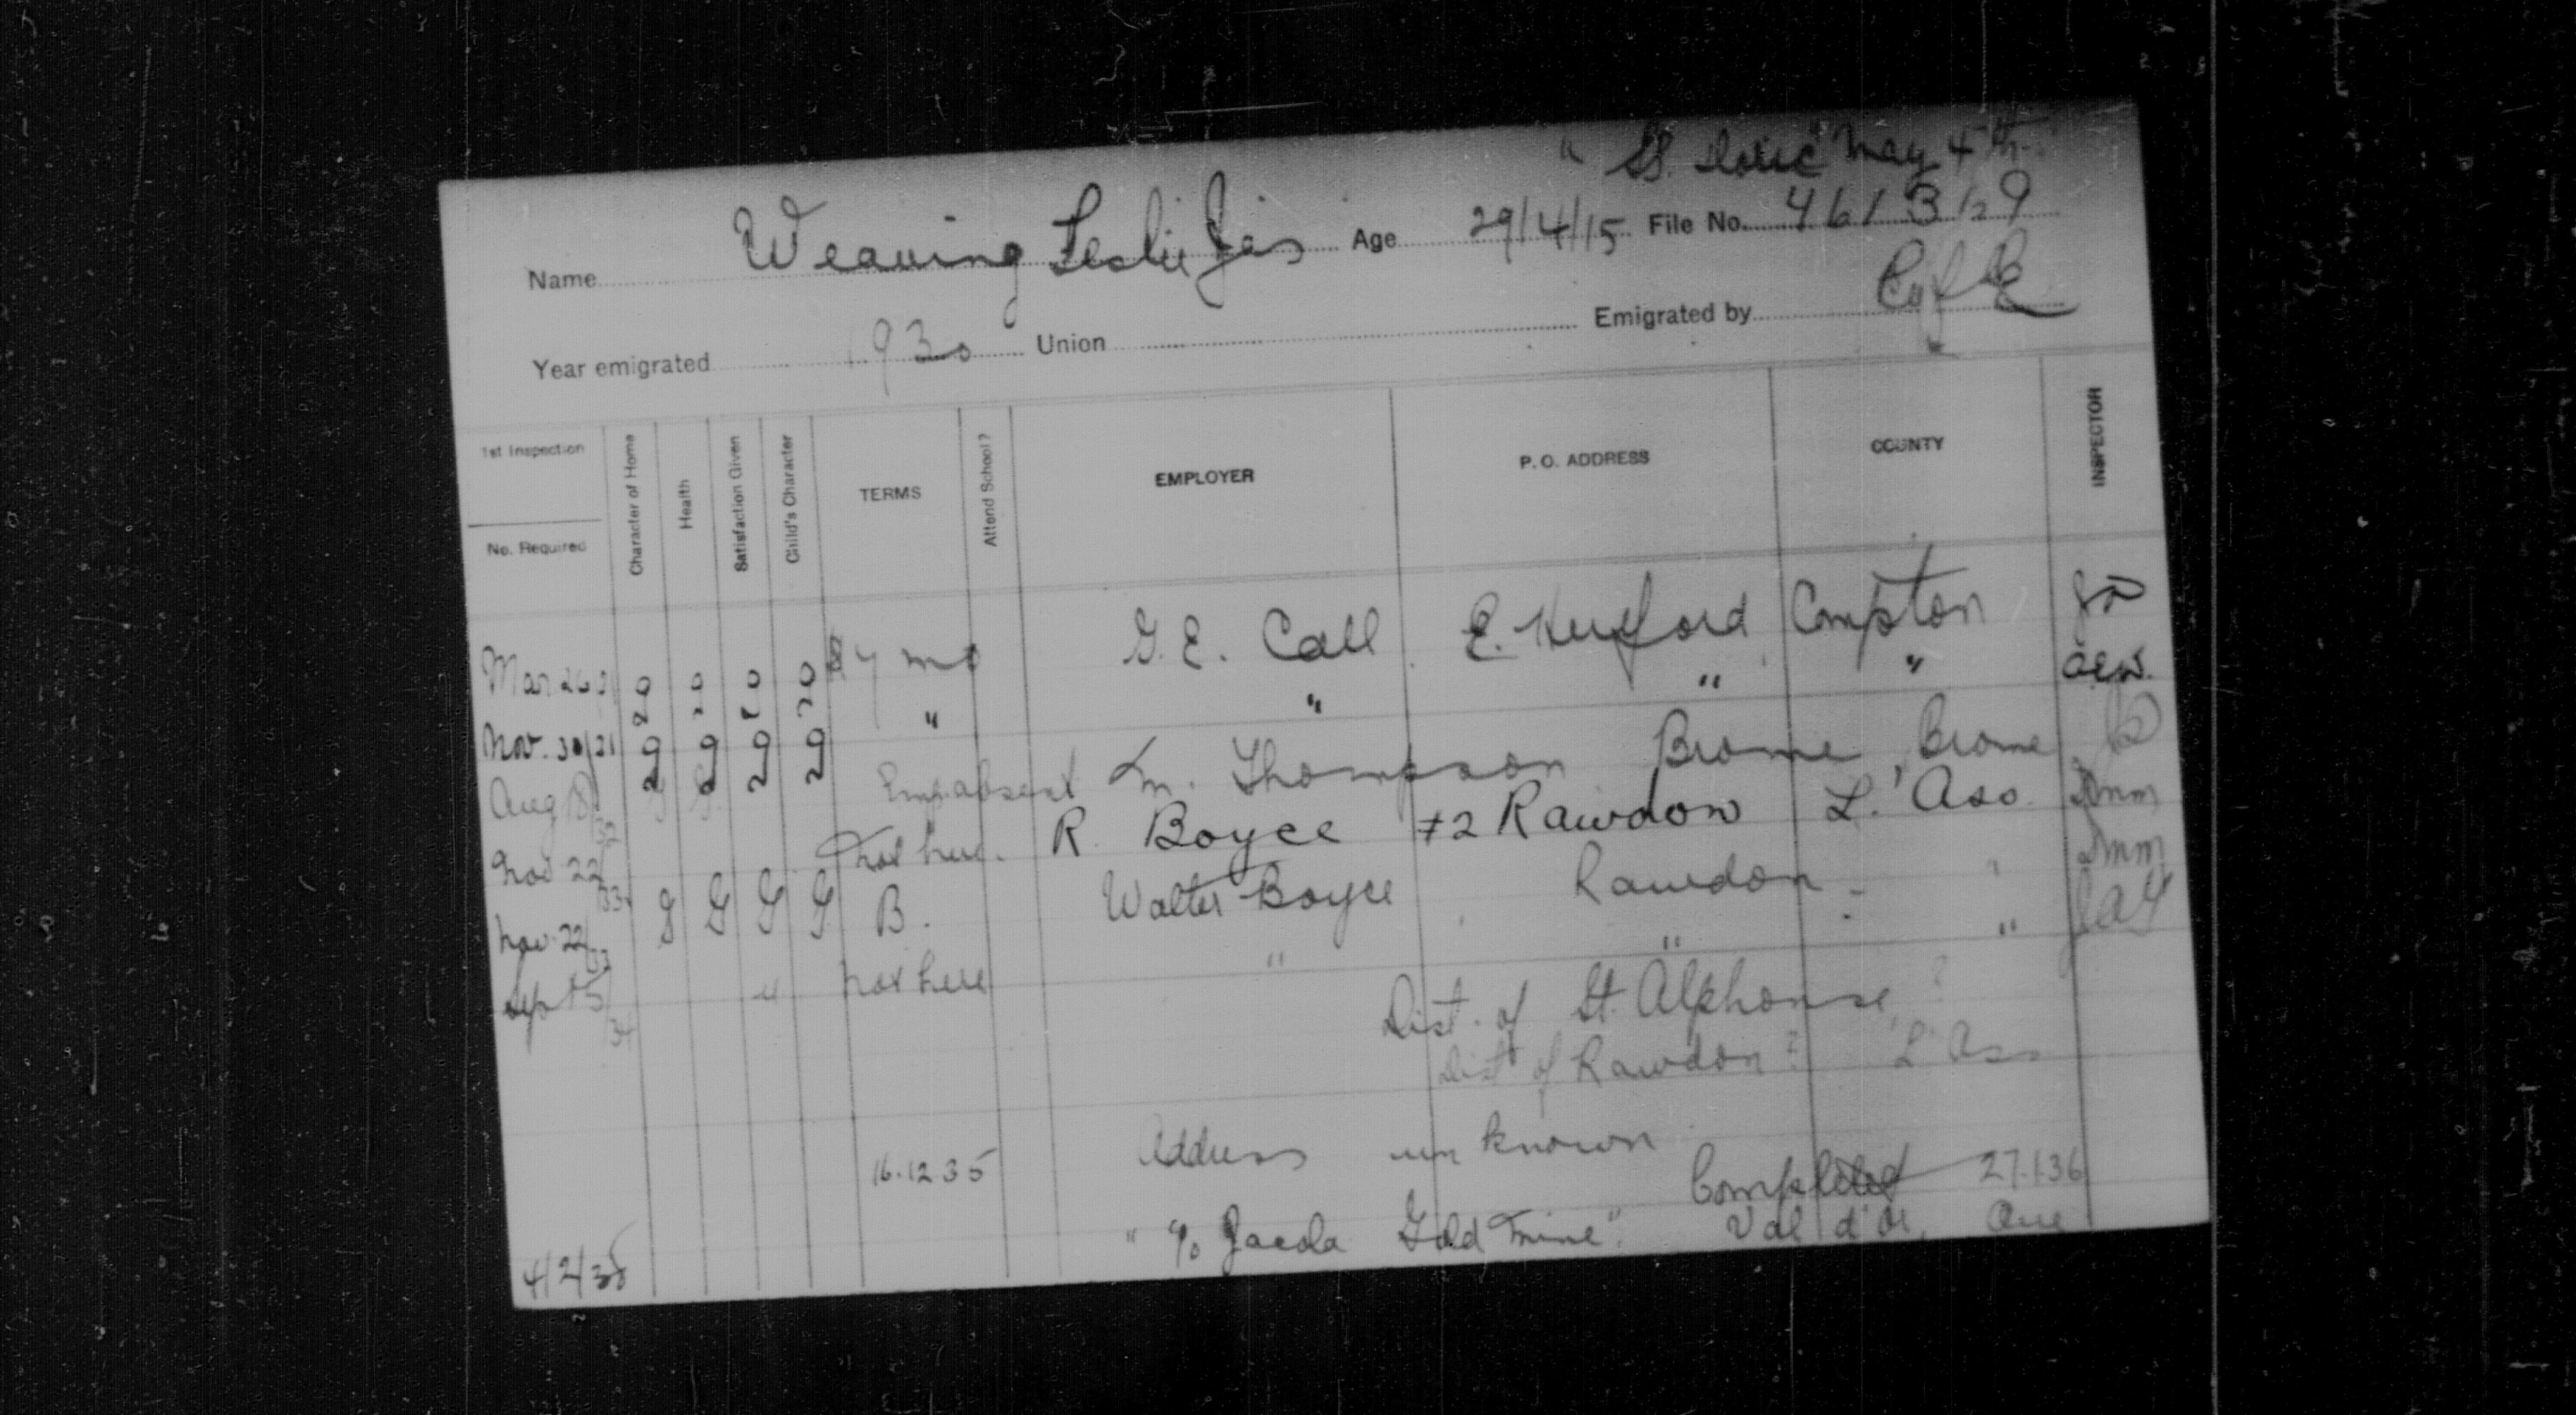 " SS. Doric" May 4th
Name Weaving Leslie Jas Age 29/4/15 File No. 461329
Year emigrated 1930 Union Emigrated by
1st Inspection
No. Required
Character of Home
Health
Satisfaction Given
Child's Character
TERMS
Attend School?
EMPLOYER
P. O. ADDRESS
COUNTY
INSPECTOR
Mar 26 g g g g 7 mo G. E. Call E. Hereford Compton
Nov. 30/31 g g g g " " " "
Aug Emp. absent Thompson Brome Brome
Nov 22/33 not here. R. Boyce #2 Rawdon L' Ass. DMM
Nov. 22/33 G G G G B. Walter Boyce Rawdon " DMM
Sept 5/34 " not here " " "
Dist. of St. Alphonse ?
Dist of Rawdon ? L' Ass
16.12 35 Address unknown
Completed 27.1.36
4/2/38 " c/o Jacola Gold Mine". Val d'Or, Que